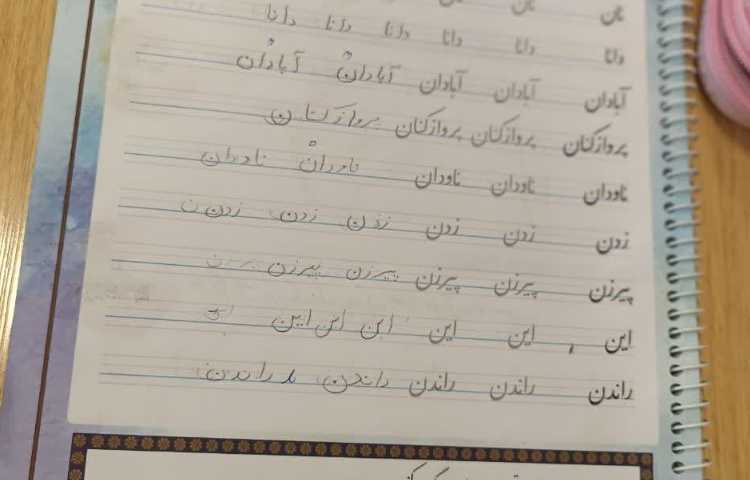 نان نان نان
دانا دانا دانا دانا دانا دانا
آبادان آبادان آبادان آبادان آبادان
پروازکنان پروازکنان پروازکنان پروازکنان
ناودان ناودان ناودان ناودان ناودان
زدن زدن زدن زدن زدن زدن
پیرزن پیرزن پیرزن پیرزن پیرزن
این این این این این ایین
راندن راندن راندن راندن راندن